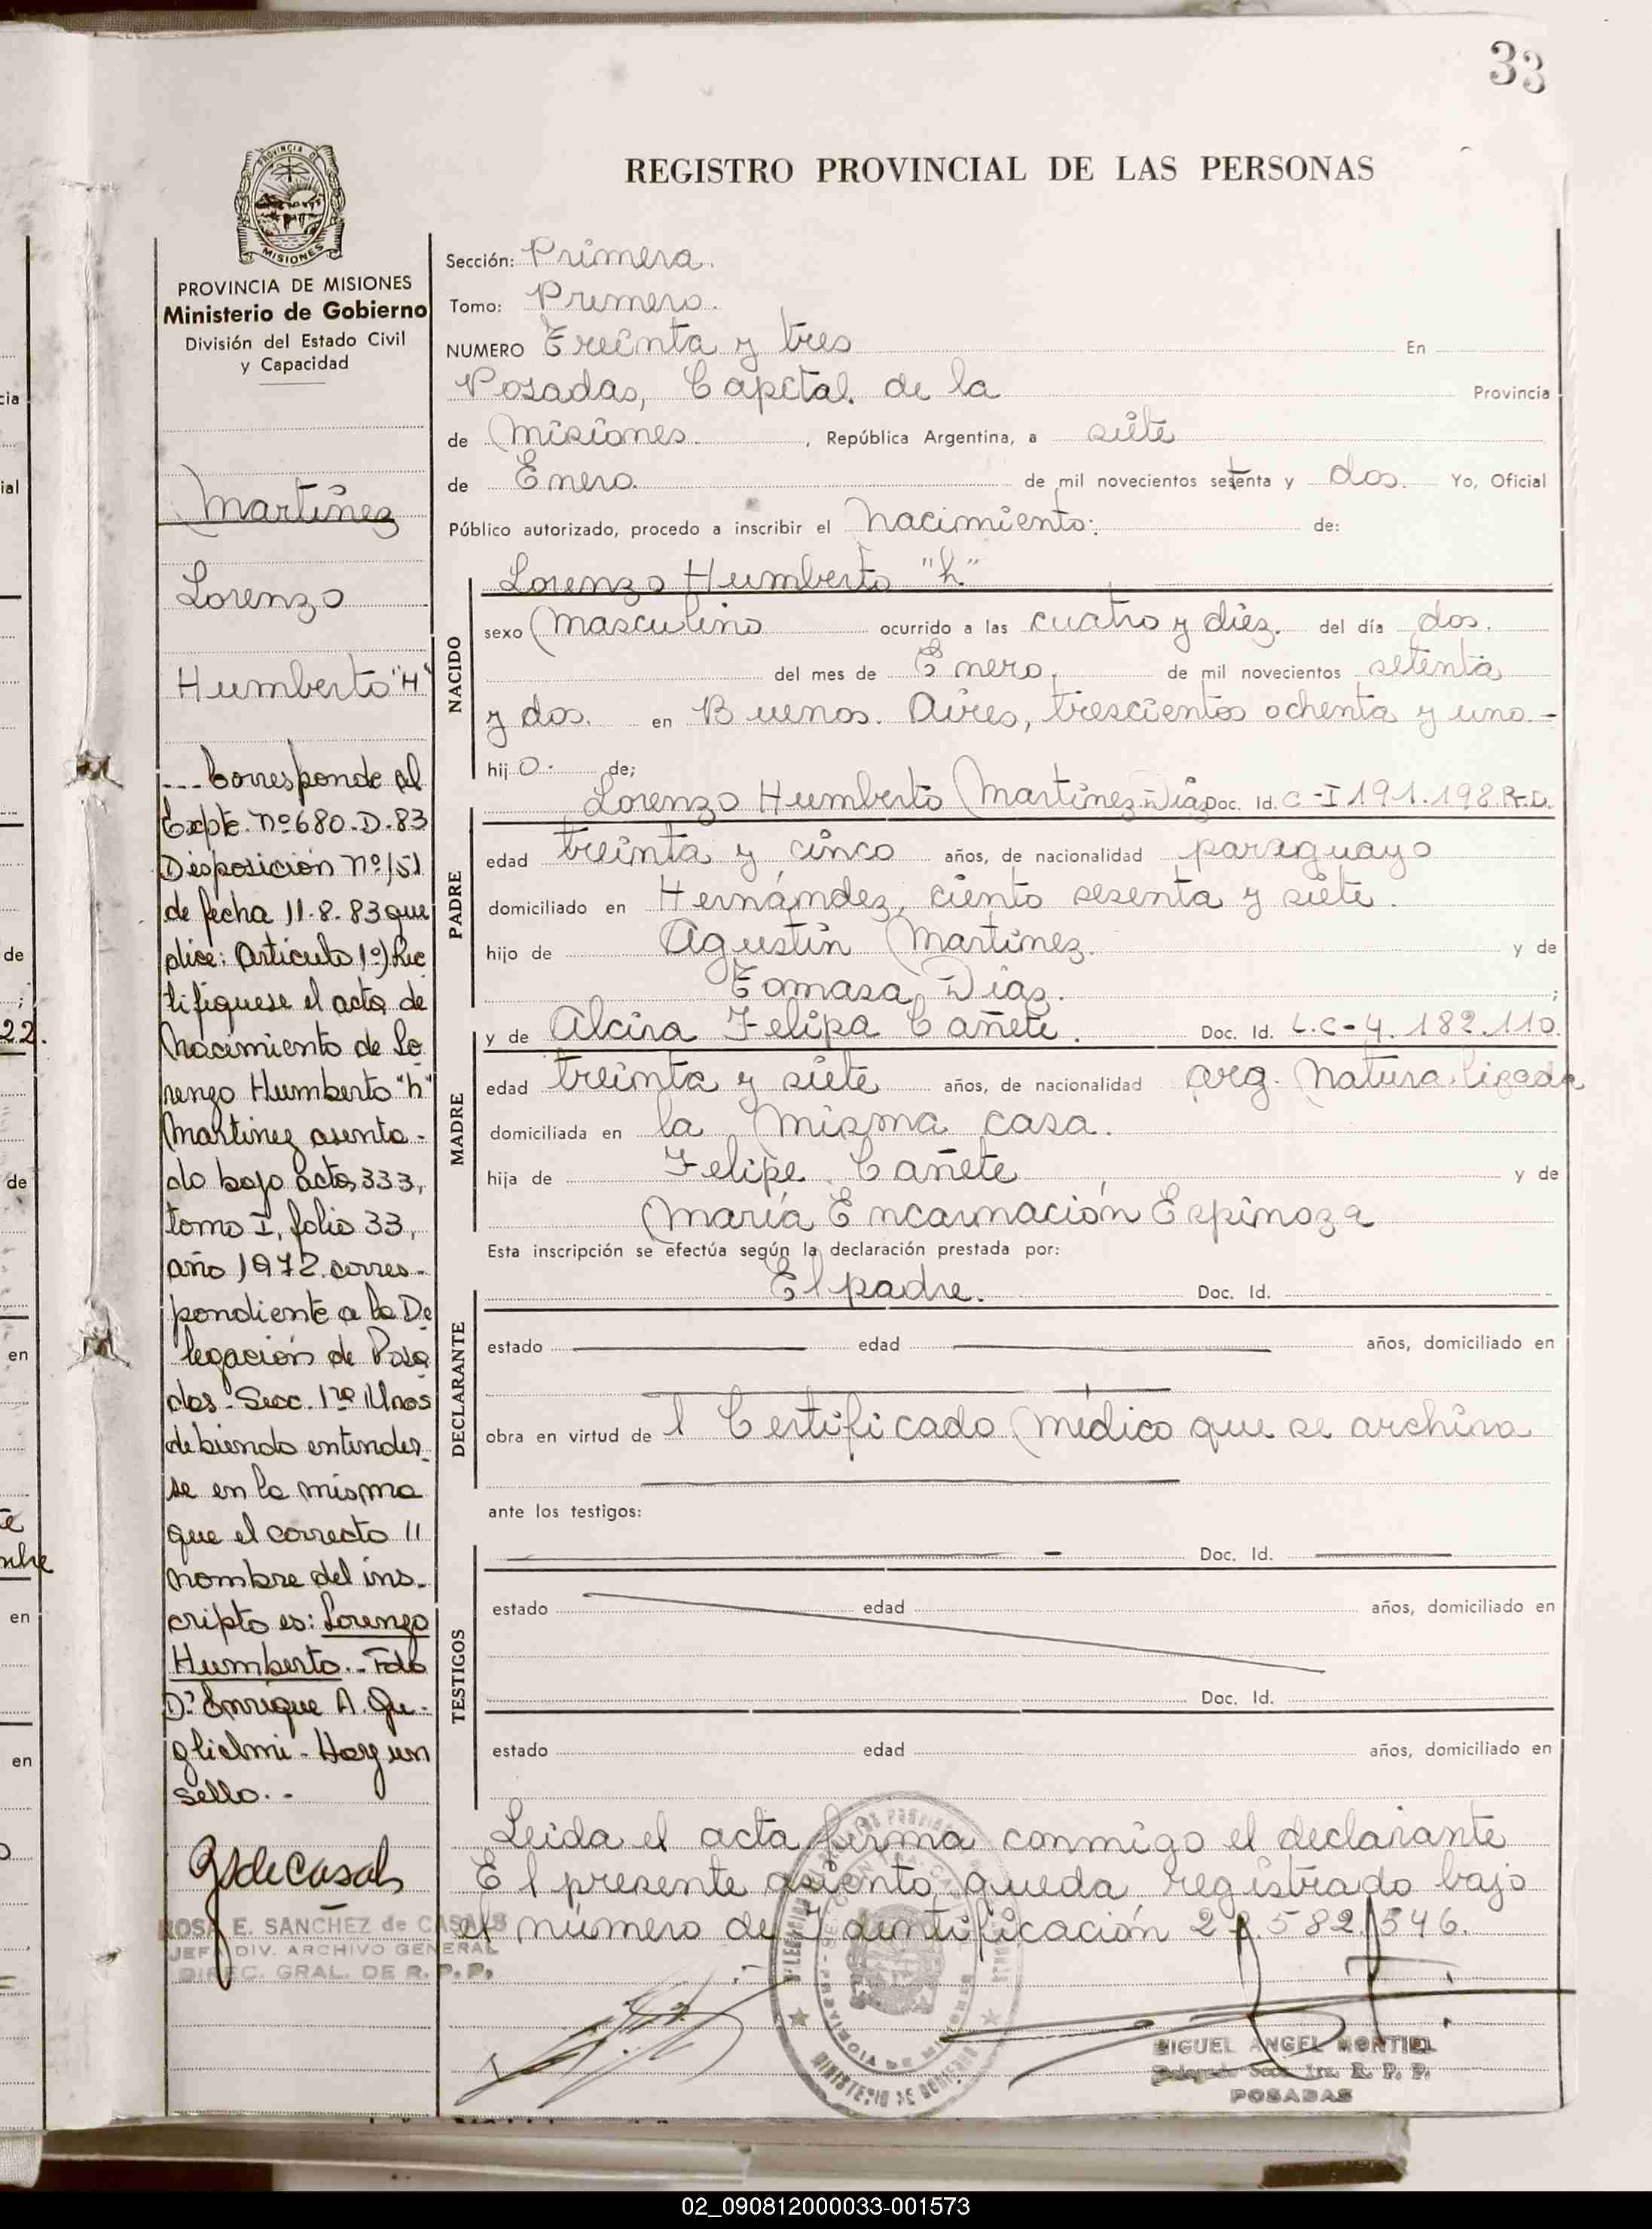 33
PROVINCIA DE
MISIONES
REGISTRO PROVINCIAL DE LAS PERSONAS
PROVINCIA DE MISIONES
Ministerio de Gobierno
División del Estado Civil
y Capacidad
Martínez
Lorenzo
Humberto "H"
--- Corresponde al
Expte. Nº 680-D-83
Disposición Nº 151
de fecha 11-8-83 que
dice: Artículo 1º) Rec
tifiquese el acta de
Nacimiento de Lo
renzo Humberto "h"
Martinez asenta-
do bajo acta 333,
tomo I, folio 33,
año 1972 corres-
pondiente a la De
legación de Posa
das - Secc. 1ra Unos
debiendo entender-
se en la misma
que el correcto 11
nombre del ins-
cripto es: Lorenzo
Humberto.- Fdo
Dr. Enrique A. Gu-
glielmi - Hay un
sello.-
ROSA E. SANCHEZ de CASALS
JEFA DIV. ARCHIVO GENERAL
DIREC. GRAL. DE R. P. P.
Sección: Primera.
Tomo: Primero.
NUMERO Treinta y tres En
Posadas, Capital de la Provincia
de Misiones, República Argentina, a siete
de Enero de mil novecientos setenta y dos. Yo, Oficial
Público autorizado, procedo a inscribir el Nacimiento: de:
Lorenzo Humberto "h"
NACIDO
sexo Masculino ocurrido a las cuatro y diez. del día dos.
del mes de Enero, de mil novecientos setenta
y dos. en Buenos Aires, trescientos ochenta y uno.-
hijo. de;
PADRE
Lorenzo Humberto Martínez Díaz Doc. Id. C-I 191.198.R.D.
edad treinta y cinco años, de nacionalidad paraguayo
domiciliado en Hernández, ciento sesenta y siete.
hijo de Agustín Martínez. y de
Tomasa Díaz. ;
MADRE
y de Alcira Felipa Cañete. Doc. Id. L.C-4.182.110.
edad treinta y siete años, de nacionalidad arg. Naturalizada
domiciliada en la misma casa.
hija de Felipe Cañete y de
María Encarnación Espinoza
Esta inscripción se efectúa según la declaración prestada por:
DECLARANTE
El padre. Doc. Id.
estado edad años, domiciliado en
obra en virtud de l Certificado Médico que se archiva
ante los testigos:
TESTIGOS
Doc. Id.
estado edad años, domiciliado en
Doc. Id.
estado edad años, domiciliado en
Leída el acta firma conmigo el declarante
El presente asiento queda registrado bajo
el número de Identificación
MINISTERIO DE GOBIERNO
PROVINCIA DE MISIONES
MIGUEL ANGEL MONTIEL
Delegado Secc. 1ra. R. P. P.
POSADAS
cia
ial
de
;
22.
de
en
en
en
02_090812000033-001573